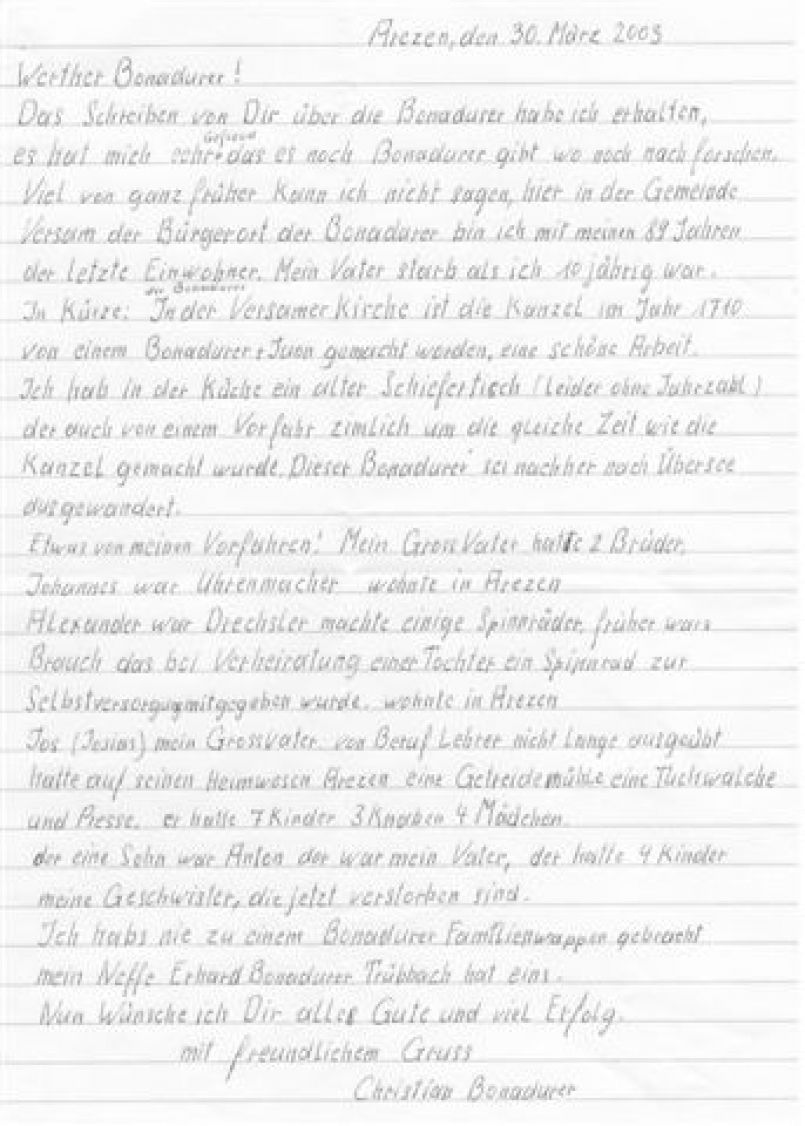 Arezen, den 30. März 2003
Werther Bonadurer!
Das Schreiben von Dir über die Bonadurer habe ich erhalten,
gefreut
es hat mich sehr das es noch Bonadurer gibt wo noch nach forschen.
Viel von ganz früher kann ich nicht sagen, hier in der Gemeinde
Versam der Bürgerort der Bonadurer bin ich mit meinen 89 Jahren
der letzte Einwohner. Mein Vater starb als ich 10 jährig war.
der Bonadurer
In Kürze: In der Versamer Kirche ist die Kanzel im Jahr 1710
von einem Bonadurer + Juon gemacht worden, eine schöne Arbeit.
Ich hab in der Küche ein alter Schiefertisch (leider ohne Jahrzahl)
der auch von einem Vorfahr zimlich um die gleiche Zeit wie die
Kanzel gemacht wurde. Dieser Bonadurer sei nachher nach Übersee
ausgewandert.
Etwas von meinen Vorfahren! Mein GrossVater hatte 2 Brüder,
Johannes war Uhrenmacher wohnte in Arezen
Alexander war Drechsler machte einige Spinnräder, früher wars
Brauch das bei Verheiratung einer Tochter ein Spinnrad zur
Selbstversorgung mitgegeben wurde. wohnte in Arezen
Jos (Josias) mein Grossvater von Beruf Lehrer nicht lange ausgeübt
hatte auf seinen Heimwesen Arezen eine Getreidemühle eine Tuchwalche
und Presse. er hatte 7 Kinder 3 Knaben 4 Mädchen.
der eine Sohn war Anton der war mein Vater, der hatte 4 Kinder
meine Geschwister, die jetzt verstorben sind.
Ich habs nie zu einem Bonadurer Familienwappen gebracht
mein Neffe Erhard Bonadurer Trübbach hat eins.
Nun Wünsche ich Dir alles Gute und viel Erfolg.
mit freundlichem Gruss
Christian Bonadurer